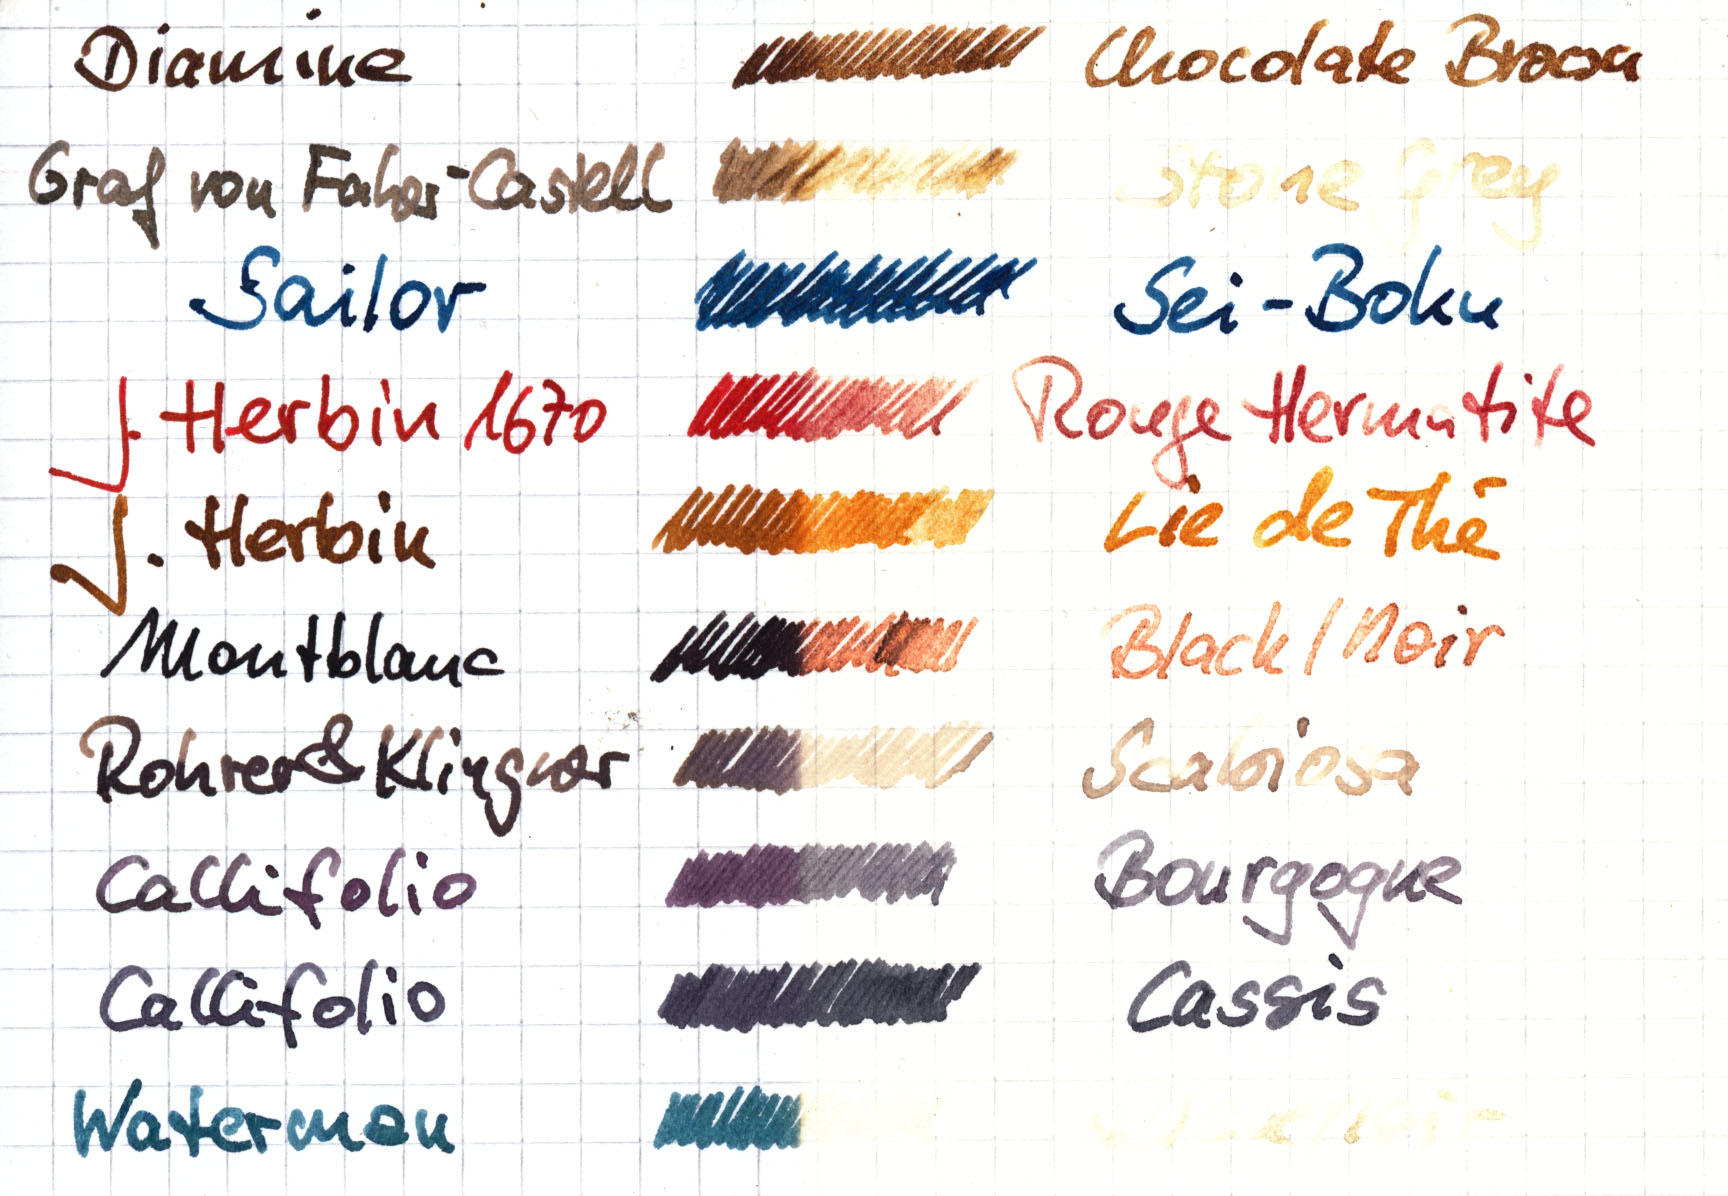 Diamine Chocolate Brown
Graf von Faber-Castell Stone Grey
Sailor Sei-Boku
J. Herbin 1670 Rouge Hermatite
J. Herbin Lie de Thé
Montblanc Black/Noir
Rohrer & Klingner Scabiosa
Callifolio Bourgogne
Callifolio Cassis
Waterman